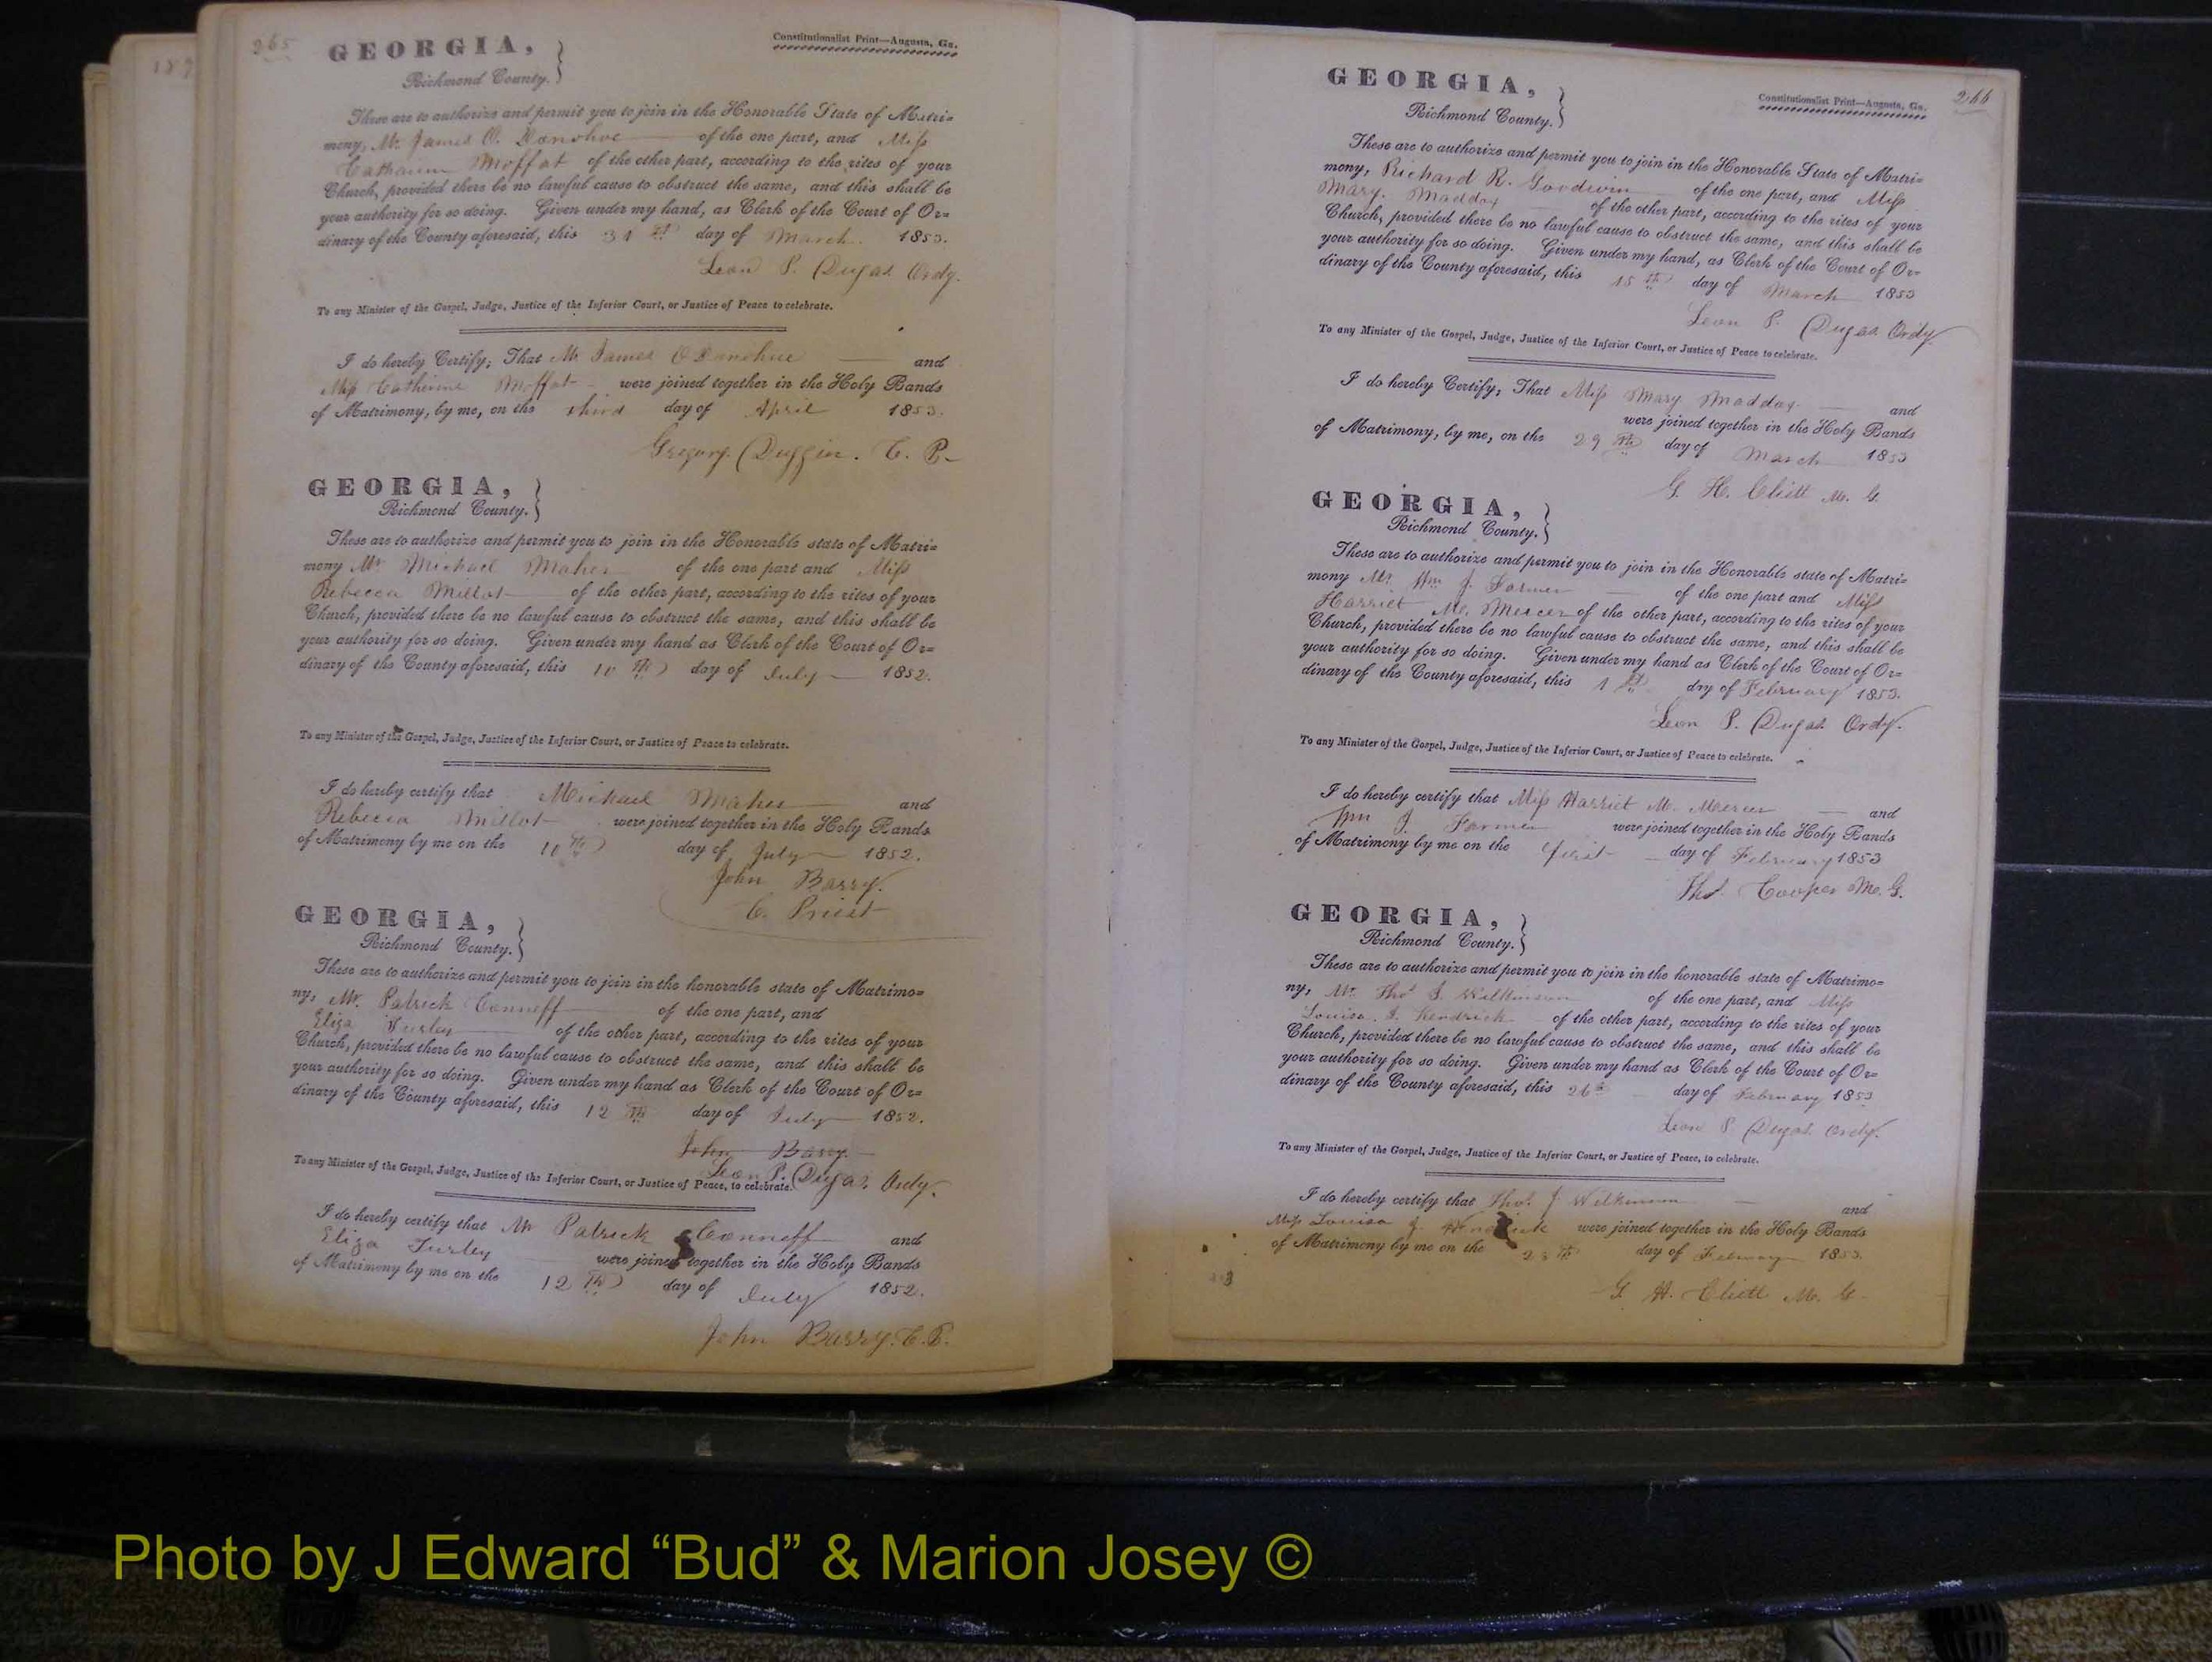 265
Constitutionalist Print—Augusta, Ga.
GEORGIA,
Richmond County.
These are to authorize and permit you to join in the Honorable State of Matri=
mony, Mr. James O. Donohoe of the one part, and Miss
Catharine Moffat of the other part, according to the rites of your
Church, provided there be no lawful cause to obstruct the same, and this shall be
your authority for so doing. Given under my hand, as Clerk of the Court of Or=
dinary of the County aforesaid, this 31st day of March 1853.
Leon P. Dugas Ordy.
To any Minister of the Gospel, Judge, Justice of the Inferior Court, or Justice of Peace to celebrate.
I do hereby Certify; That Mr James O Donohue and
Miss Catherine Moffat were joined together in the Holy Bands
of Matrimony, by me, on the third day of April 1853.
Gregory Duggin. C. P.
GEORGIA,
Richmond County.
These are to authorize and permit you to join in the Honorable state of Matri=
mony Mr Michael Maher of the one part and Miss
Rebecca Millot of the other part, according to the rites of your
Church, provided there be no lawful cause to obstruct the same, and this shall be
your authority for so doing. Given under my hand as Clerk of the Court of Or=
dinary of the County aforesaid, this 10th day of July 1852.
To any Minister of the Gospel, Judge, Justice of the Inferior Court, or Justice of Peace to celebrate.
I do hereby certify that Michael Maher and
Rebecca Millot were joined together in the Holy Bands
of Matrimony by me on the 10th day of July 1852.
John Barry.
C. Priest
GEORGIA,
Richmond County.
These are to authorize and permit you to join in the honorable state of Matrimo=
ny, Mr. Patrick Conneff of the one part, and
Eliza Turley of the other part, according to the rites of your
Church, provided there be no lawful cause to obstruct the same, and this shall be
your authority for so doing. Given under my hand as Clerk of the Court of Or=
dinary of the County aforesaid, this 12th day of July 1852.
John Barry
Leon P. Dugas. Ordy.
To any Minister of the Gospel, Judge, Justice of the Inferior Court, or Justice of Peace, to celebrate.
I do hereby certify that Mr Patrick Conneff and
Eliza Turley were joined together in the Holy Bands
of Matrimony by me on the 12th day of July 1852.
John Barry. C. P.
266
Constitutionalist Print—Augusta, Ga.
GEORGIA,
Richmond County.
These are to authorize and permit you to join in the Honorable State of Matri=
mony, Richard R. Goodwin of the one part, and Miss
Mary. Maddox of the other part, according to the rites of your
Church, provided there be no lawful cause to obstruct the same, and this shall be
your authority for so doing. Given under my hand, as Clerk of the Court of Or=
dinary of the County aforesaid, this 15th day of March 1853
Leon P. Dugas. Ordy
To any Minister of the Gospel, Judge, Justice of the Inferior Court, or Justice of Peace to celebrate.
I do hereby Certify, That Miss Mary Maddox and
were joined together in the Holy Bands
of Matrimony, by me, on the 29th day of March 1853
G. H. Cliett M. G.
GEORGIA,
Richmond County.
These are to authorize and permit you to join in the Honorable state of Matri=
mony Mr. Wm J. Farmer of the one part and Miss
Harriet M. Mercer of the other part, according to the rites of your
Church, provided there be no lawful cause to obstruct the same, and this shall be
your authority for so doing. Given under my hand as Clerk of the Court of Or=
dinary of the County aforesaid, this 1st dry of February 1853.
Leon P. Dugas. Ordy.
To any Minister of the Gospel, Judge, Justice of the Inferior Court, or Justice of Peace to celebrate.
I do hereby certify that Miss Harriet M. Mercer and
Wm J. Farmer were joined together in the Holy Bands
of Matrimony by me on the first day of February 1853
Thos. Cooper M. G.
GEORGIA,
Richmond County.
These are to authorize and permit you to join in the honorable state of Matrimo=
ny, Mr. Thos J. Wilkinson of the one part, and Miss
Louisa. J. Kendrick of the other part, according to the rites of your
Church, provided there be no lawful cause to obstruct the same, and this shall be
your authority for so doing. Given under my hand as Clerk of the Court of Or=
dinary of the County aforesaid, this 26th day of February 1853
Leon P. Dugas. Ordy.
To any Minister of the Gospel, Judge, Justice of the Inferior Court, or Justice of Peace, to celebrate.
I do hereby certify that Thos. J. Wilkinson and
Miss Louisa J. were joined together in the Holy Bands
of Matrimony by me on the day of February 1853.
G H. Cliett M. G.
Photo by J Edward “Bud” & Marion Josey ©